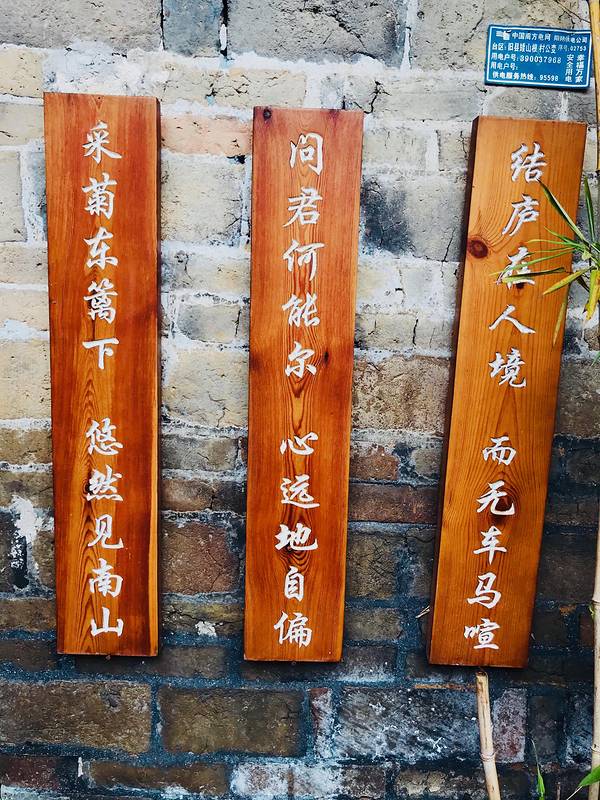 结庐在人境 而无车马喧
问君何能尔 心远地自偏
采菊东篱下 悠然见南山
中国南方电网 阳朔供电公司
台区: 山根.村公变 序号:02753
用电户号:390037968
用电户号:
供电服务热线: 95598
幸福万家
安全用电